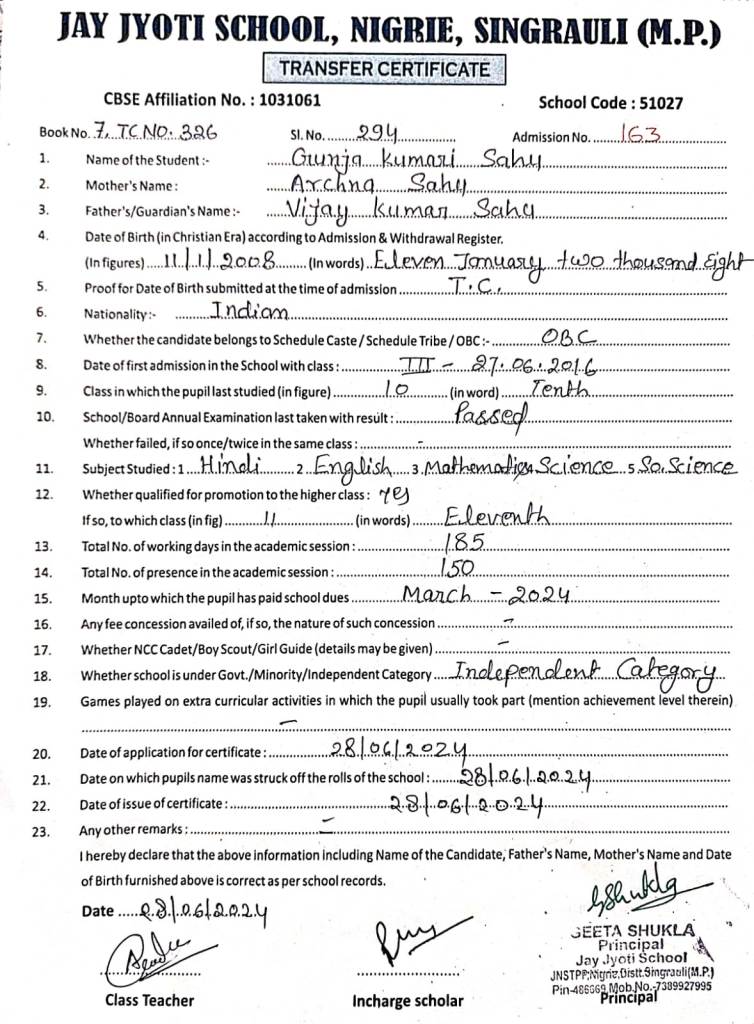 JAY JYOTI SCHOOL, NIGRIE, SINGRAULI (M.P.)
TRANSFER CERTIFICATE
CBSE Affiliation No. : 1031061 School Code : 51027
Book No. 7, TC NO. 326 Sl. No. 294 Admission No. 163
1. Name of the Student :- Gunja Kumari Sahu
2. Mother's Name : Archna Sahu
3. Father's/Guardian's Name :- Vijay Kumar Sahu
4. Date of Birth (in Christian Era) according to Admission & Withdrawal Register.
(In figures) 11/1/2008 (In words) Eleven January two thousand Eight
5. Proof for Date of Birth submitted at the time of admission T.C.
6. Nationality :- Indian
7. Whether the candidate belongs to Schedule Caste / Schedule Tribe / OBC :- OBC
8. Date of first admission in the School with class : III - 27.06.2016
9. Class in which the pupil last studied (in figure) 10 (in word) Tenth
10. School/Board Annual Examination last taken with result : Passed
Whether failed, if so once/twice in the same class : -
11. Subject Studied : 1 Hindi 2 English 3 Mathematics Science 5 So. Science
12. Whether qualified for promotion to the higher class : yes
If so, to which class (in fig) 11 (in words) Eleventh
13. Total No. of working days in the academic session : 185
14. Total No. of presence in the academic session : 150
15. Month upto which the pupil has paid school dues March - 2024
16. Any fee concession availed of, if so, the nature of such concession -
17. Whether NCC Cadet/Boy Scout/Girl Guide (details may be given) -
18. Whether school is under Govt./Minority/Independent Category Independent Category
19. Games played on extra curricular activities in which the pupil usually took part (mention achievement level therein)
-
20. Date of application for certificate : 28/06/2024
21. Date on which pupils name was struck off the rolls of the school : 28/06/2024
22. Date of issue of certificate : 28/06/2024
23. Any other remarks : -
I hereby declare that the above information including Name of the Candidate, Father's Name, Mother's Name and Date
of Birth furnished above is correct as per school records.
Date 28/06/2024
GShukla
GEETA SHUKLA
Principal
Jay Jyoti School
JNSTPP, Nigrie, Distt. Singrauli (M.P.)
Pin-486669, Mob. No.-7389927995
Class Teacher Incharge scholar Principal